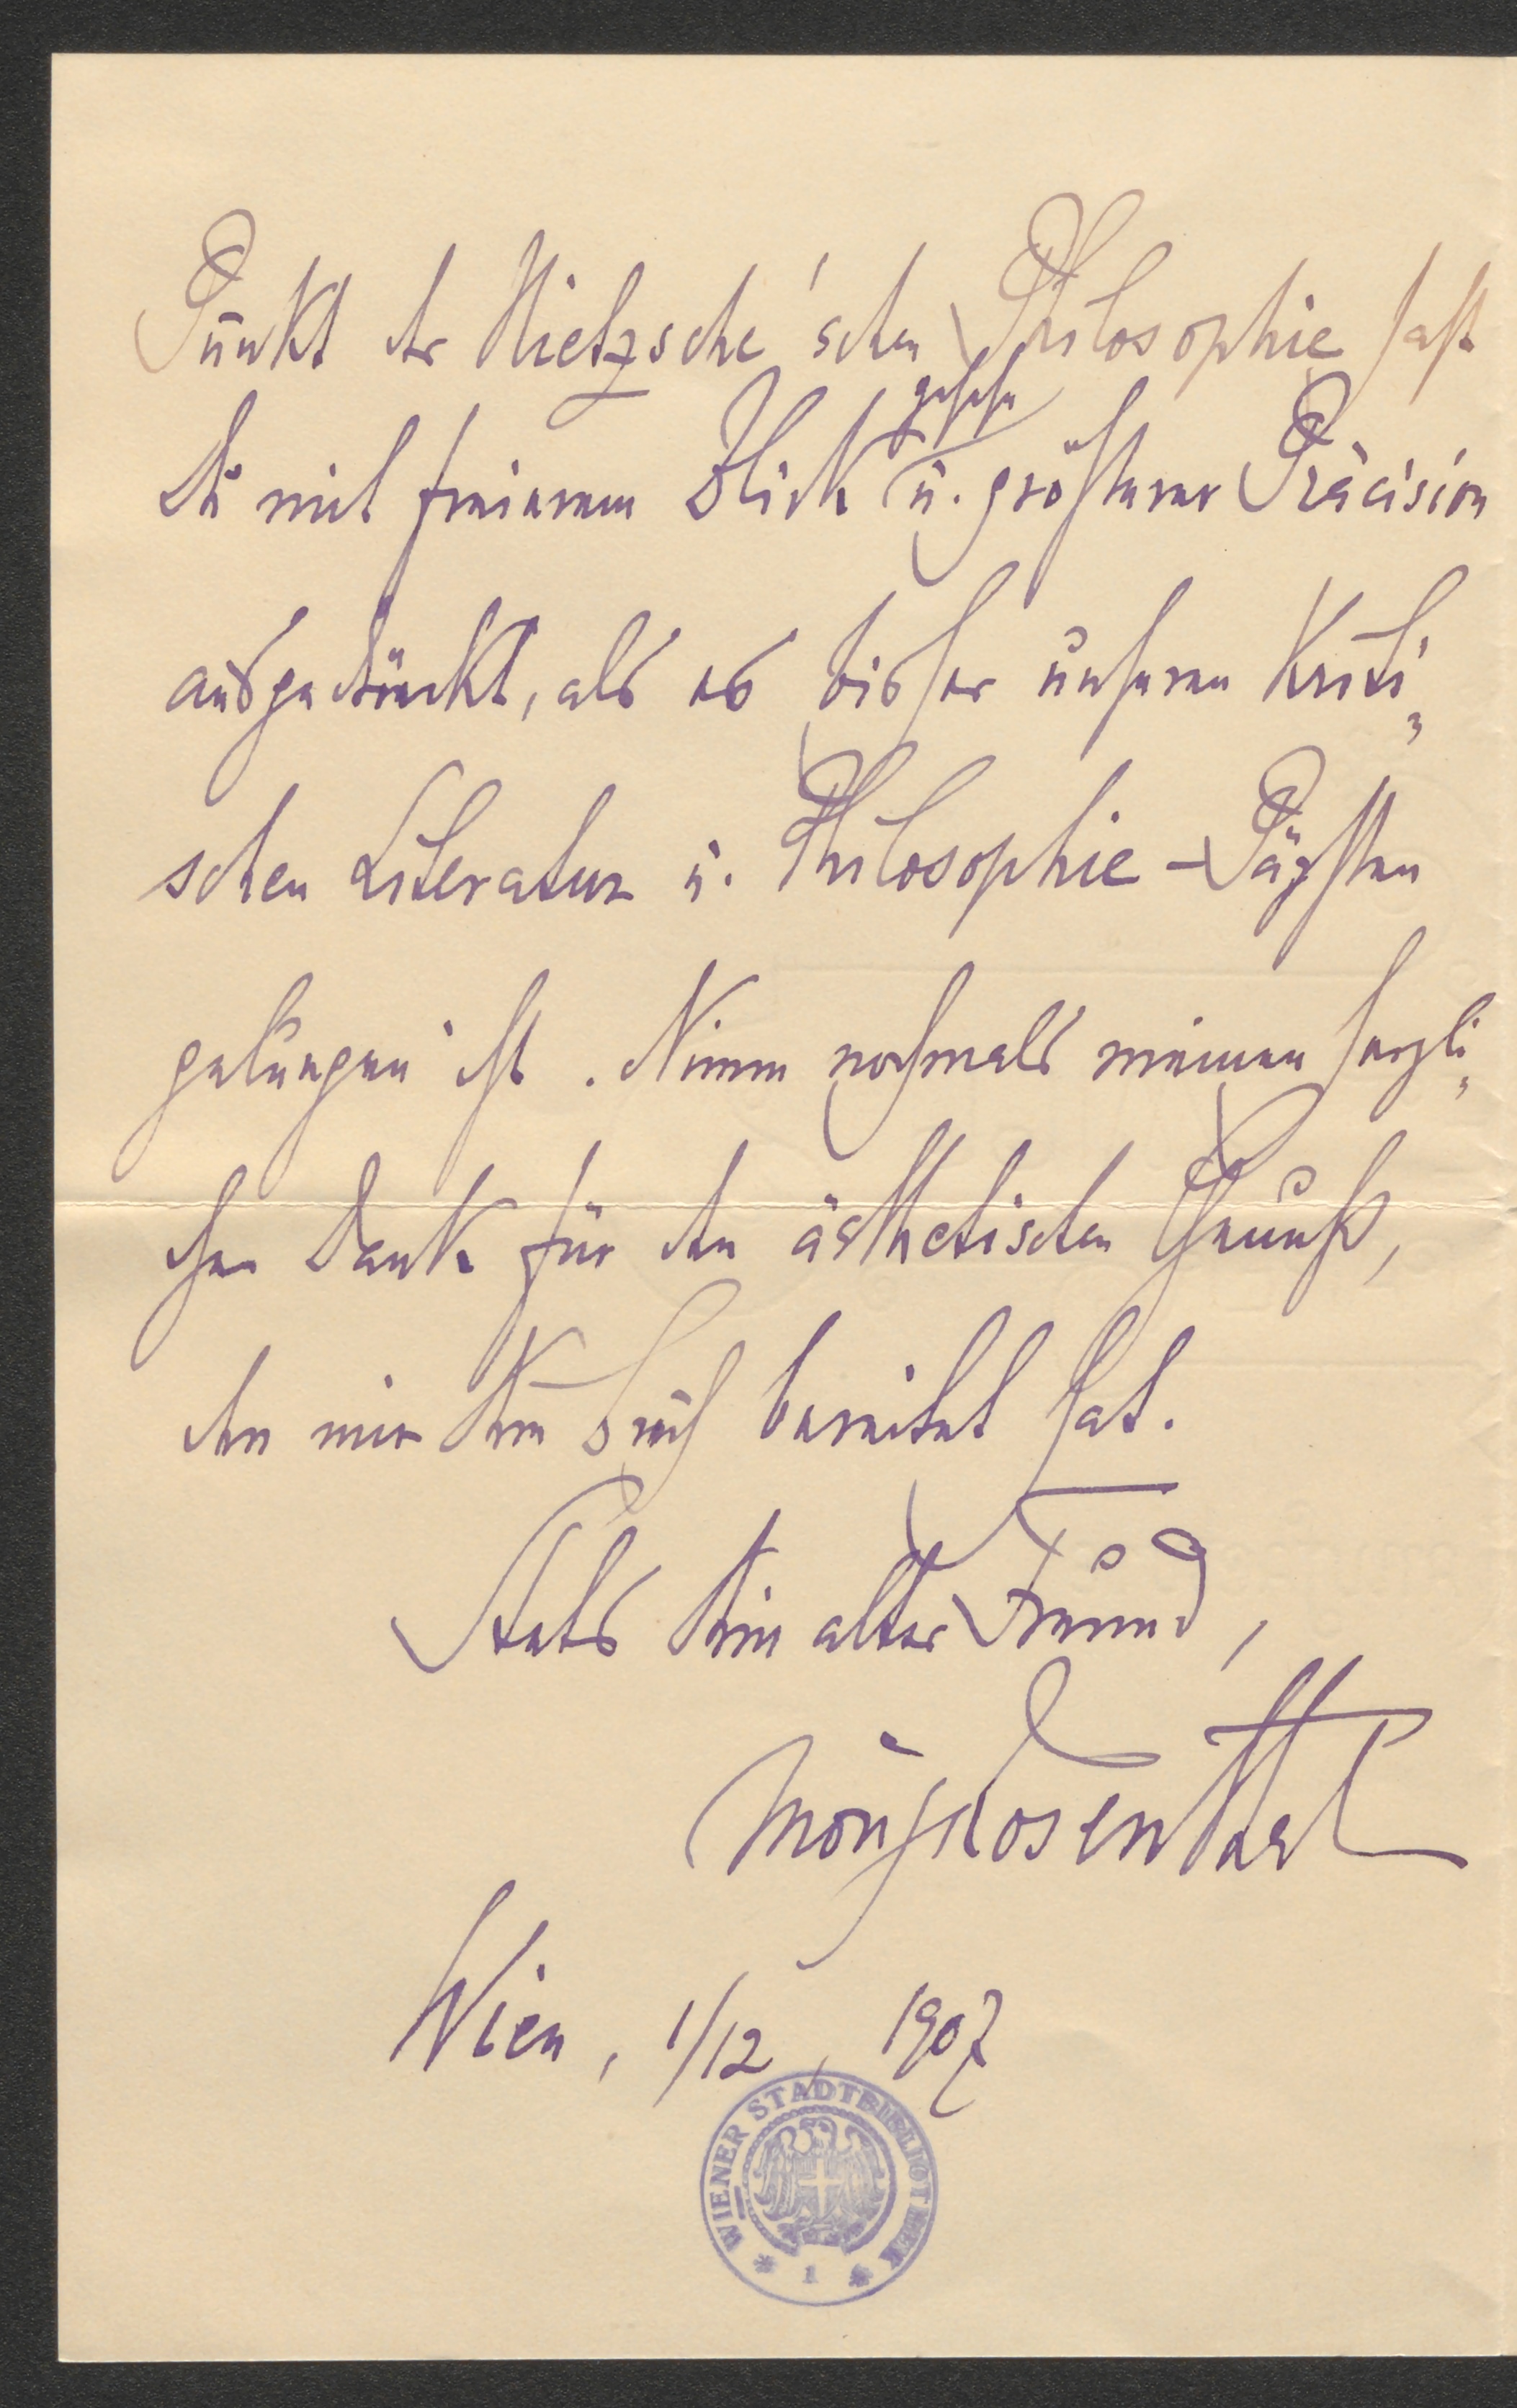 Punkt der Nietzsche'schen Philosophie hast
Du mit freierem Blick gesehen u. größerer Präcision
ausgedrückt, als es bisher unseren kriti-
schen Literatur u. Philosophie-Päpsten
gelungen ist. Nimm nochmals meinen herzli-
chen Dank für den ästhetischen Genuß,
den mir Dein Buch bereitet hat.
Stets Dein alter Freund,
Moriz Rosenthal
Wien, 1/12, 1907
WIENER STADTBIBLIOTHEK
* 1 *